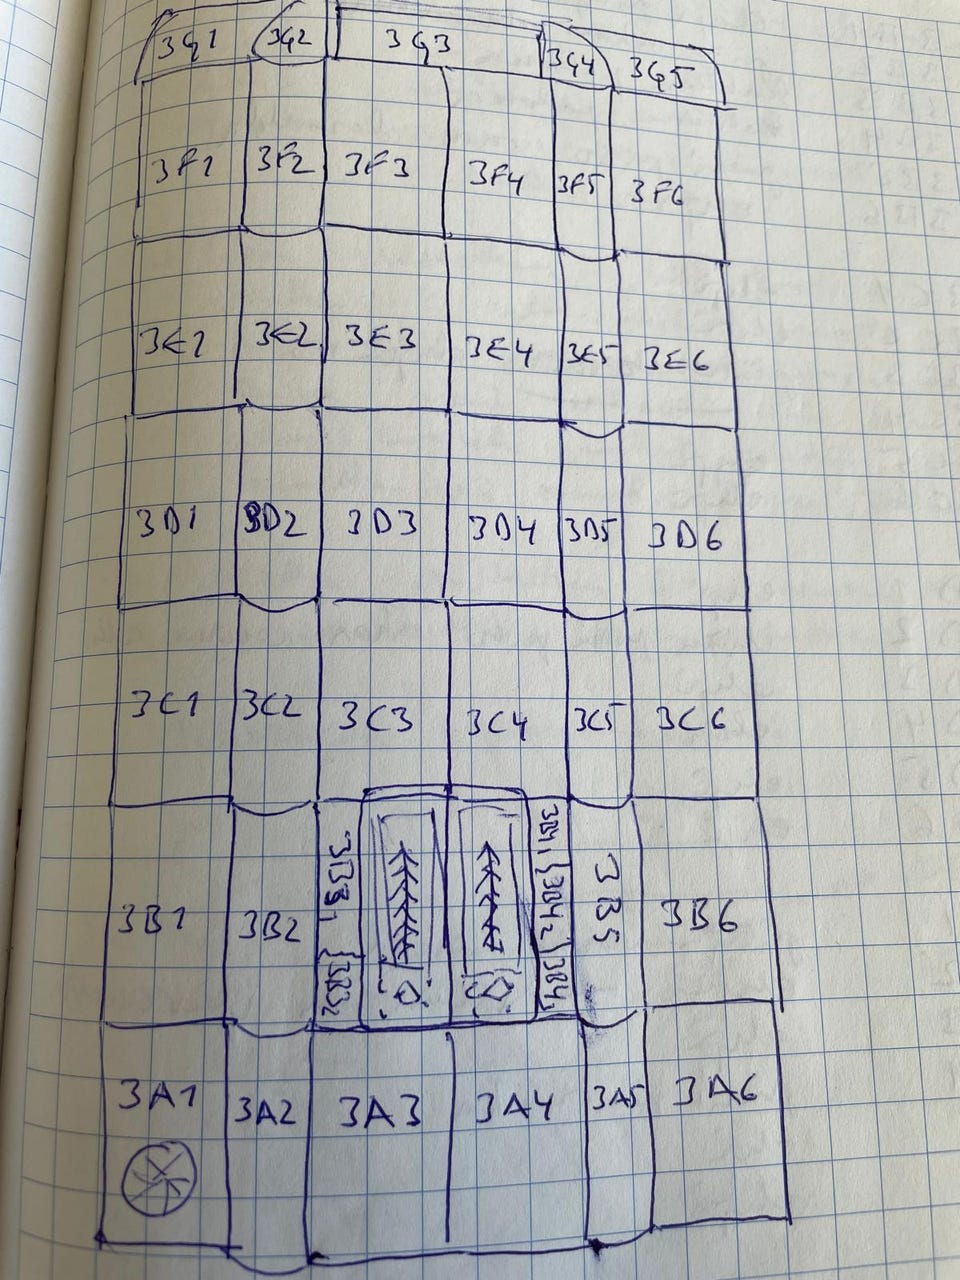 3G1 3G2 3G3 3G4 3G5
3F1 3F2 3F3 3F4 3F5 3F6
3E1 3E2 3E3 3E4 3E5 3E6
3D1 3D2 3D3 3D4 3D5 3D6
3C1 3C2 3C3 3C4 3C5 3C6
3B1 3B2 3B3₁ 3B3₂ 3B4₁ 3B4₂ 3B4₁ 3B5 3B6
3A1 3A2 3A3 3A4 3A5 3A6